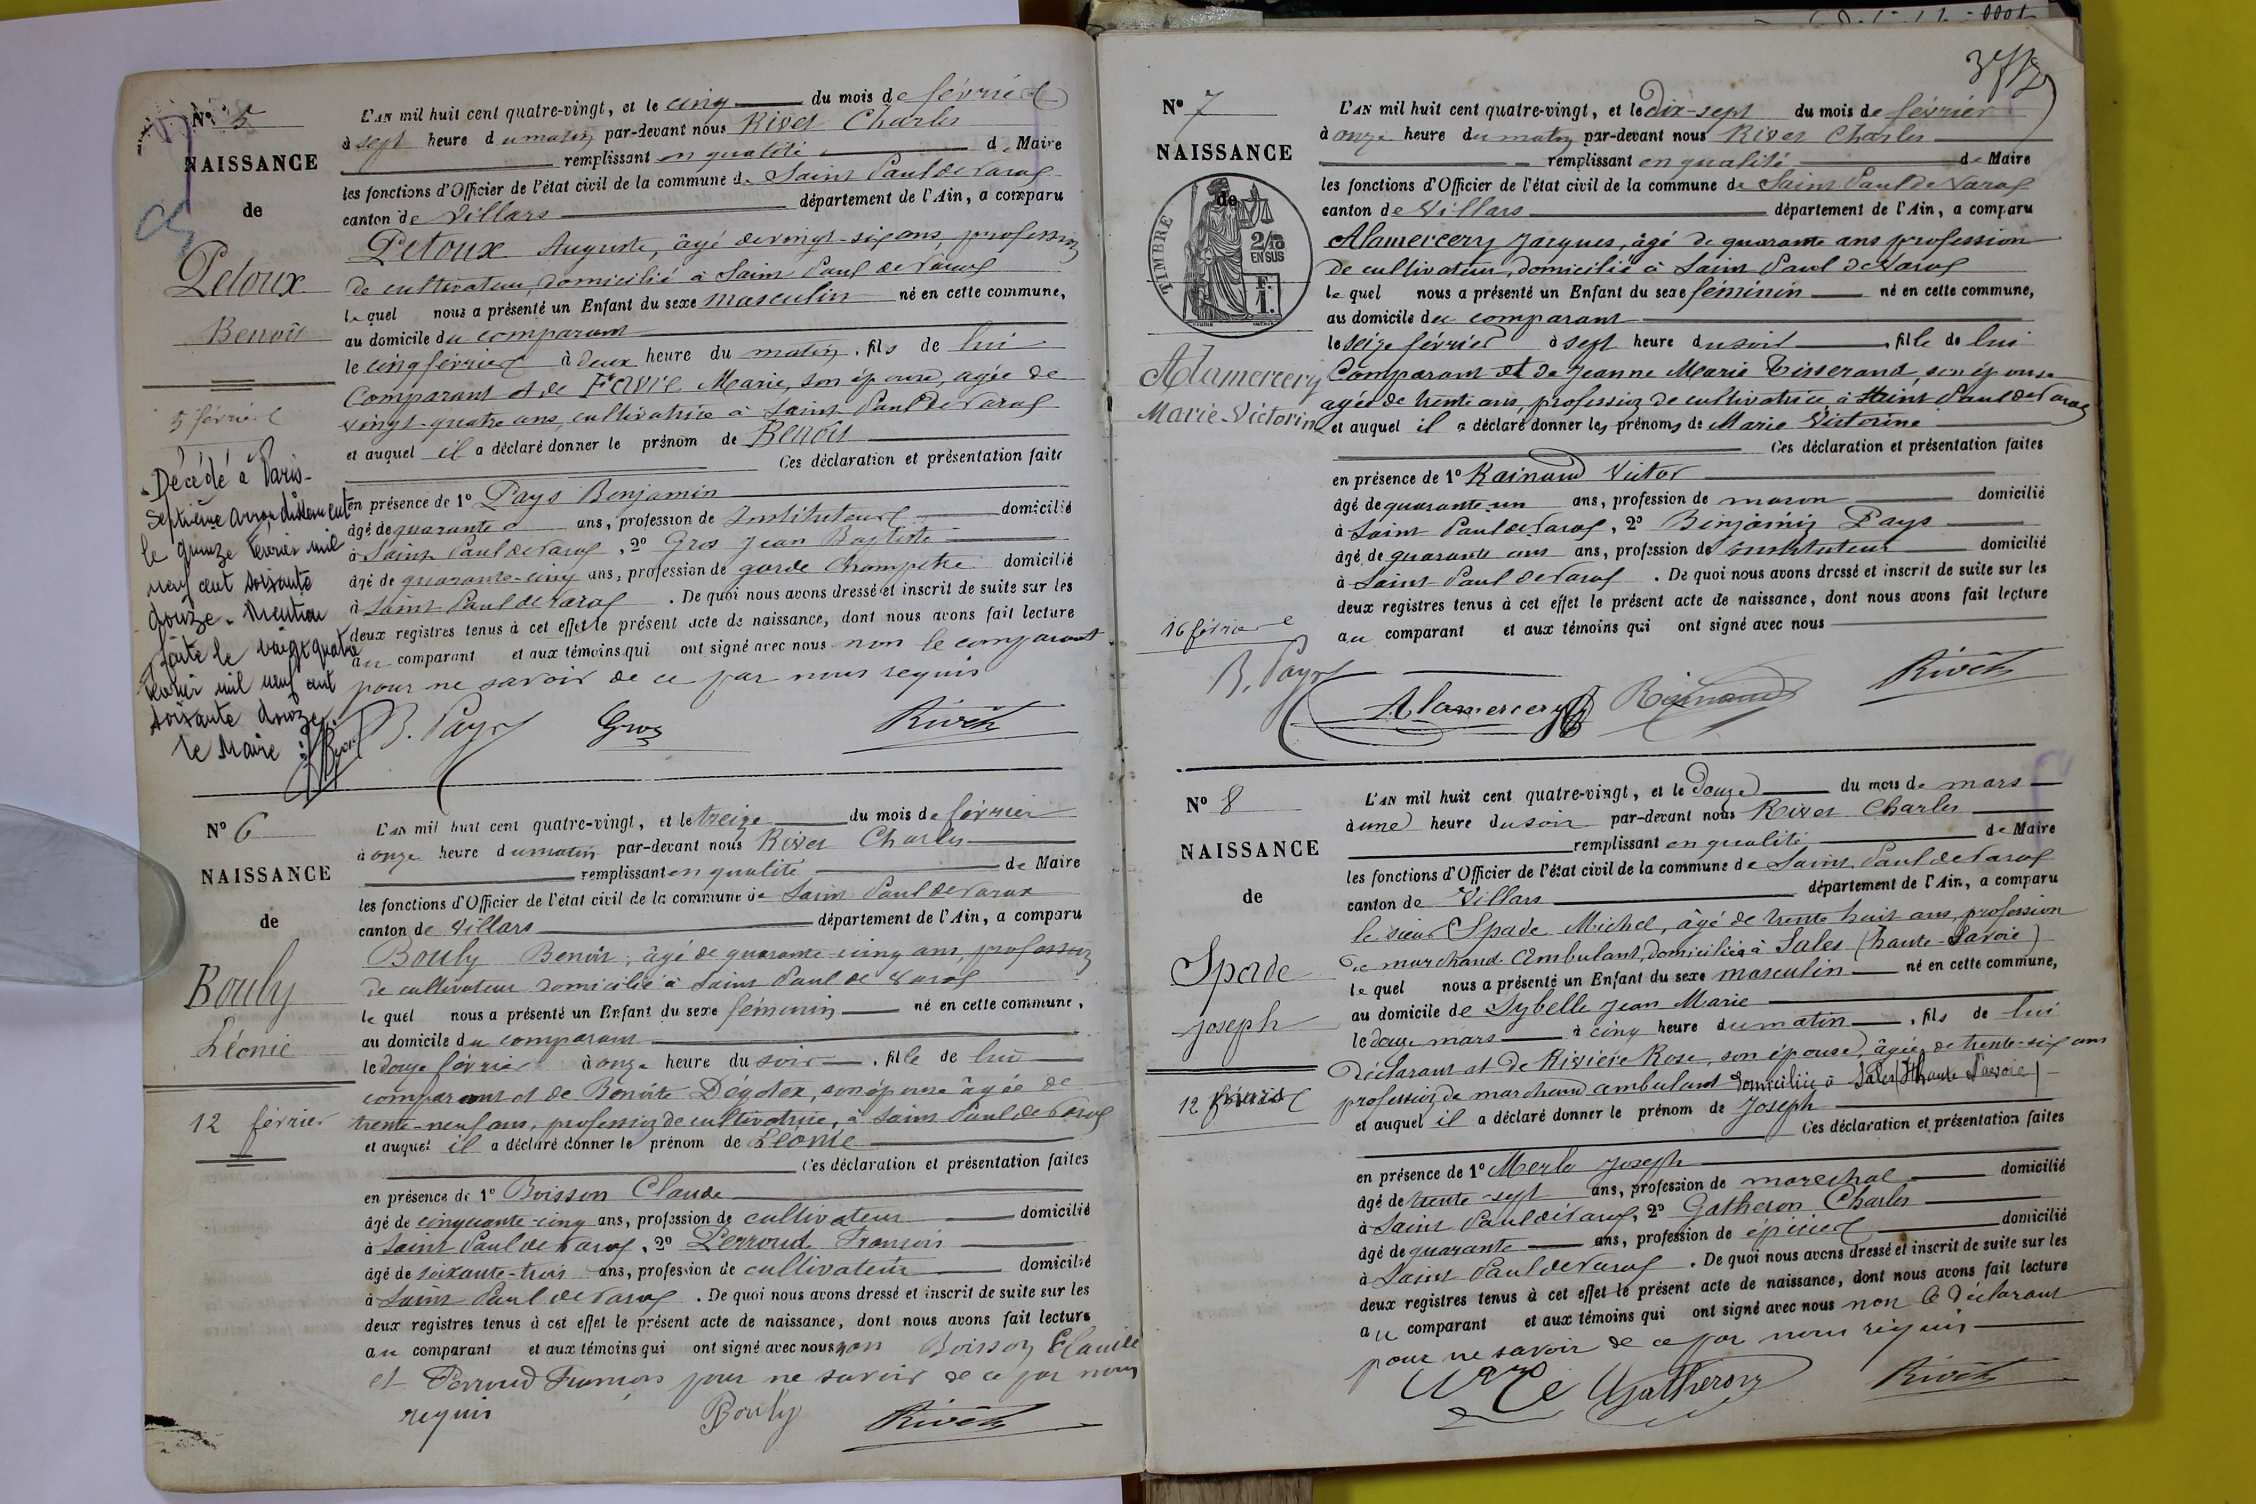 N° 5
NAISSANCE
de
Petoux
Benoît
5 février
Décédé à Paris-
septième arrondissement
le quinze février mil
neuf cent soixante
douze. Mention
faite le vingt quatre
février mil neuf cent
soixante douze
le Maire :
L'AN mil huit cent quatre-vingt, et le cinq du mois de février
à sept heure du matin par-devant nous Rivet Charles
remplissant en qualité de Maire
les fonctions d'Officier de l'état civil de la commune de Saint Paul de Varax
canton de Villars département de l'Ain, a comparu
Petoux Auguste, âgé de vingt-six ans, profession
de cultivateur, domicilié à Saint Paul de Varax
le quel nous a présenté un Enfant du sexe masculin né en cette commune,
au domicile du comparant
le cinq février à deux heure du matin, fils de lui
Comparant et de Favre Marie, son épouse, agée de
vingt-quatre ans, cultivatrice à Saint Paul de Varax
et auquel il a déclaré donner le prénom de Benoît
Ces déclaration et présentation faite
en présence de 1° Pays Benjamin
âgé de quarante ans, profession de Instituteur domicilié
à Saint Paul de Varax, 2° Gros Jean Baptiste
âgé de quarante-cinq ans, profession de garde champêtre domicilié
à Saint Paul de Varax. De quoi nous avons dressé et inscrit de suite sur les
deux registres tenus à cet effet le présent acte de naissance, dont nous avons fait lecture
au comparant et aux témoins qui ont signé avec nous non le comparant
pour ne savoir de ce par nous requis
B. Pays Gros Rivet
N° 6
NAISSANCE
de
Bouly
Léonie
12 février
L'AN mil huit cent quatre-vingt, et le treize du mois de février
à onze heure du matin par-devant nous Rivet Charles
remplissant en qualité de Maire
les fonctions d'Officier de l'état civil de la commune de Saint Paul de Varax
canton de Villars département de l'Ain, a comparu
Bouly Benoît, âgé de quarante-cinq ans, profession
de cultivateur domicilié à Saint Paul de Varax
le quel nous a présenté un Enfant du sexe féminin né en cette commune,
au domicile du comparant
le douze février à onze heure du soir, fille de lui
comparant et de Benoîte Dégotex, son épouse âgée de
trente-neuf ans, profession de cultivatrice, à Saint Paul de Varax
et auquel il a déclaré donner le prénom de Léonie
Ces déclaration et présentation faites
en présence de 1° Boisson Claude
âgé de cinquante-cinq ans, profession de cultivateur domicilié
à Saint Paul de Varax, 2° Perroud François
âgé de soixante-trois ans, profession de cultivateur domicilié
à Saint Paul de Varax. De quoi nous avons dressé et inscrit de suite sur les
deux registres tenus à cet effet le présent acte de naissance, dont nous avons fait lecture
au comparant et aux témoins qui ont signé avec nous non Boisson Claude
et Perroud François pour ne savoir de ce par nous
requis Bouly Rivet
N° 7
NAISSANCE
de
TIMBRE
2/10
EN SUS
F.
1.
Alamercery
Marie Victorine
16 février
L'AN mil huit cent quatre-vingt, et le dix-sept du mois de février
à onze heure du matin par-devant nous Rivet Charles
remplissant en qualité de Maire
les fonctions d'Officier de l'état civil de la commune de Saint Paul de Varax
canton de Villars département de l'Ain, a comparu
Alamercery Jacques, âgé de quarante ans profession
de cultivateur, domicilié à Saint Paul de Varax
le quel nous a présenté un Enfant du sexe féminin né en cette commune,
au domicile du comparant
le seize février à sept heure du soir, fille de lui
Comparant et de Jeanne Marie Tisserand, son épouse
agée de trente ans, profession de cultivatrice à Saint Paul de Varax
et auquel il a déclaré donner les prénoms de Marie Victorine
Ces déclaration et présentation faites
en présence de 1° Rainaud Victor
âgé de quarante-un ans, profession de maçon domicilié
à Saint Paul de Varax, 2° Benjamin Pays
âgé de quarante ans ans, profession de instituteur domicilié
à Saint Paul de Varax. De quoi nous avons dressé et inscrit de suite sur les
deux registres tenus à cet effet le présent acte de naissance, dont nous avons fait lecture
au comparant et aux témoins qui ont signé avec nous
B. Pays Alamercery Rainaud Rivet
N° 8
NAISSANCE
de
Spade
Joseph
12 février
L'AN mil huit cent quatre-vingt, et le douze du mois de mars
à une heure du soir par-devant nous Rivet Charles
remplissant en qualité de Maire
les fonctions d'Officier de l'état civil de la commune de Saint Paul de Varax
canton de Villars département de l'Ain, a comparu
le sieur Spade Michel, âgé de trente huit ans, profession
de marchand ambulant, domicilié à Sales (haute-Savoie)
le quel nous a présenté un Enfant du sexe masculin né en cette commune,
au domicile de Sybelle Jean Marie
le douze mars à cinq heure du matin, fils de lui
déclarant et de Rivière Rose, son épouse, âgée de trente-six ans
profession de marchand ambulant domiciliée à Sales (Haute Savoie)
et auquel il a déclaré donner le prénom de Joseph
Ces déclaration et présentation faites
en présence de 1° Merle Joseph
âgé de trente-sept ans, profession de marechal domicilié
à Saint Paul de Varax, 2° Gatheron Charles
âgé de quarante ans, profession de épicier domicilié
à Saint Paul de Varax. De quoi nous avons dressé et inscrit de suite sur les
deux registres tenus à cet effet le présent acte de naissance, dont nous avons fait lecture
au comparant et aux témoins qui ont signé avec nous non le déclarant
pour ne savoir de ce par nous requis
Merle Gatheron Rivet